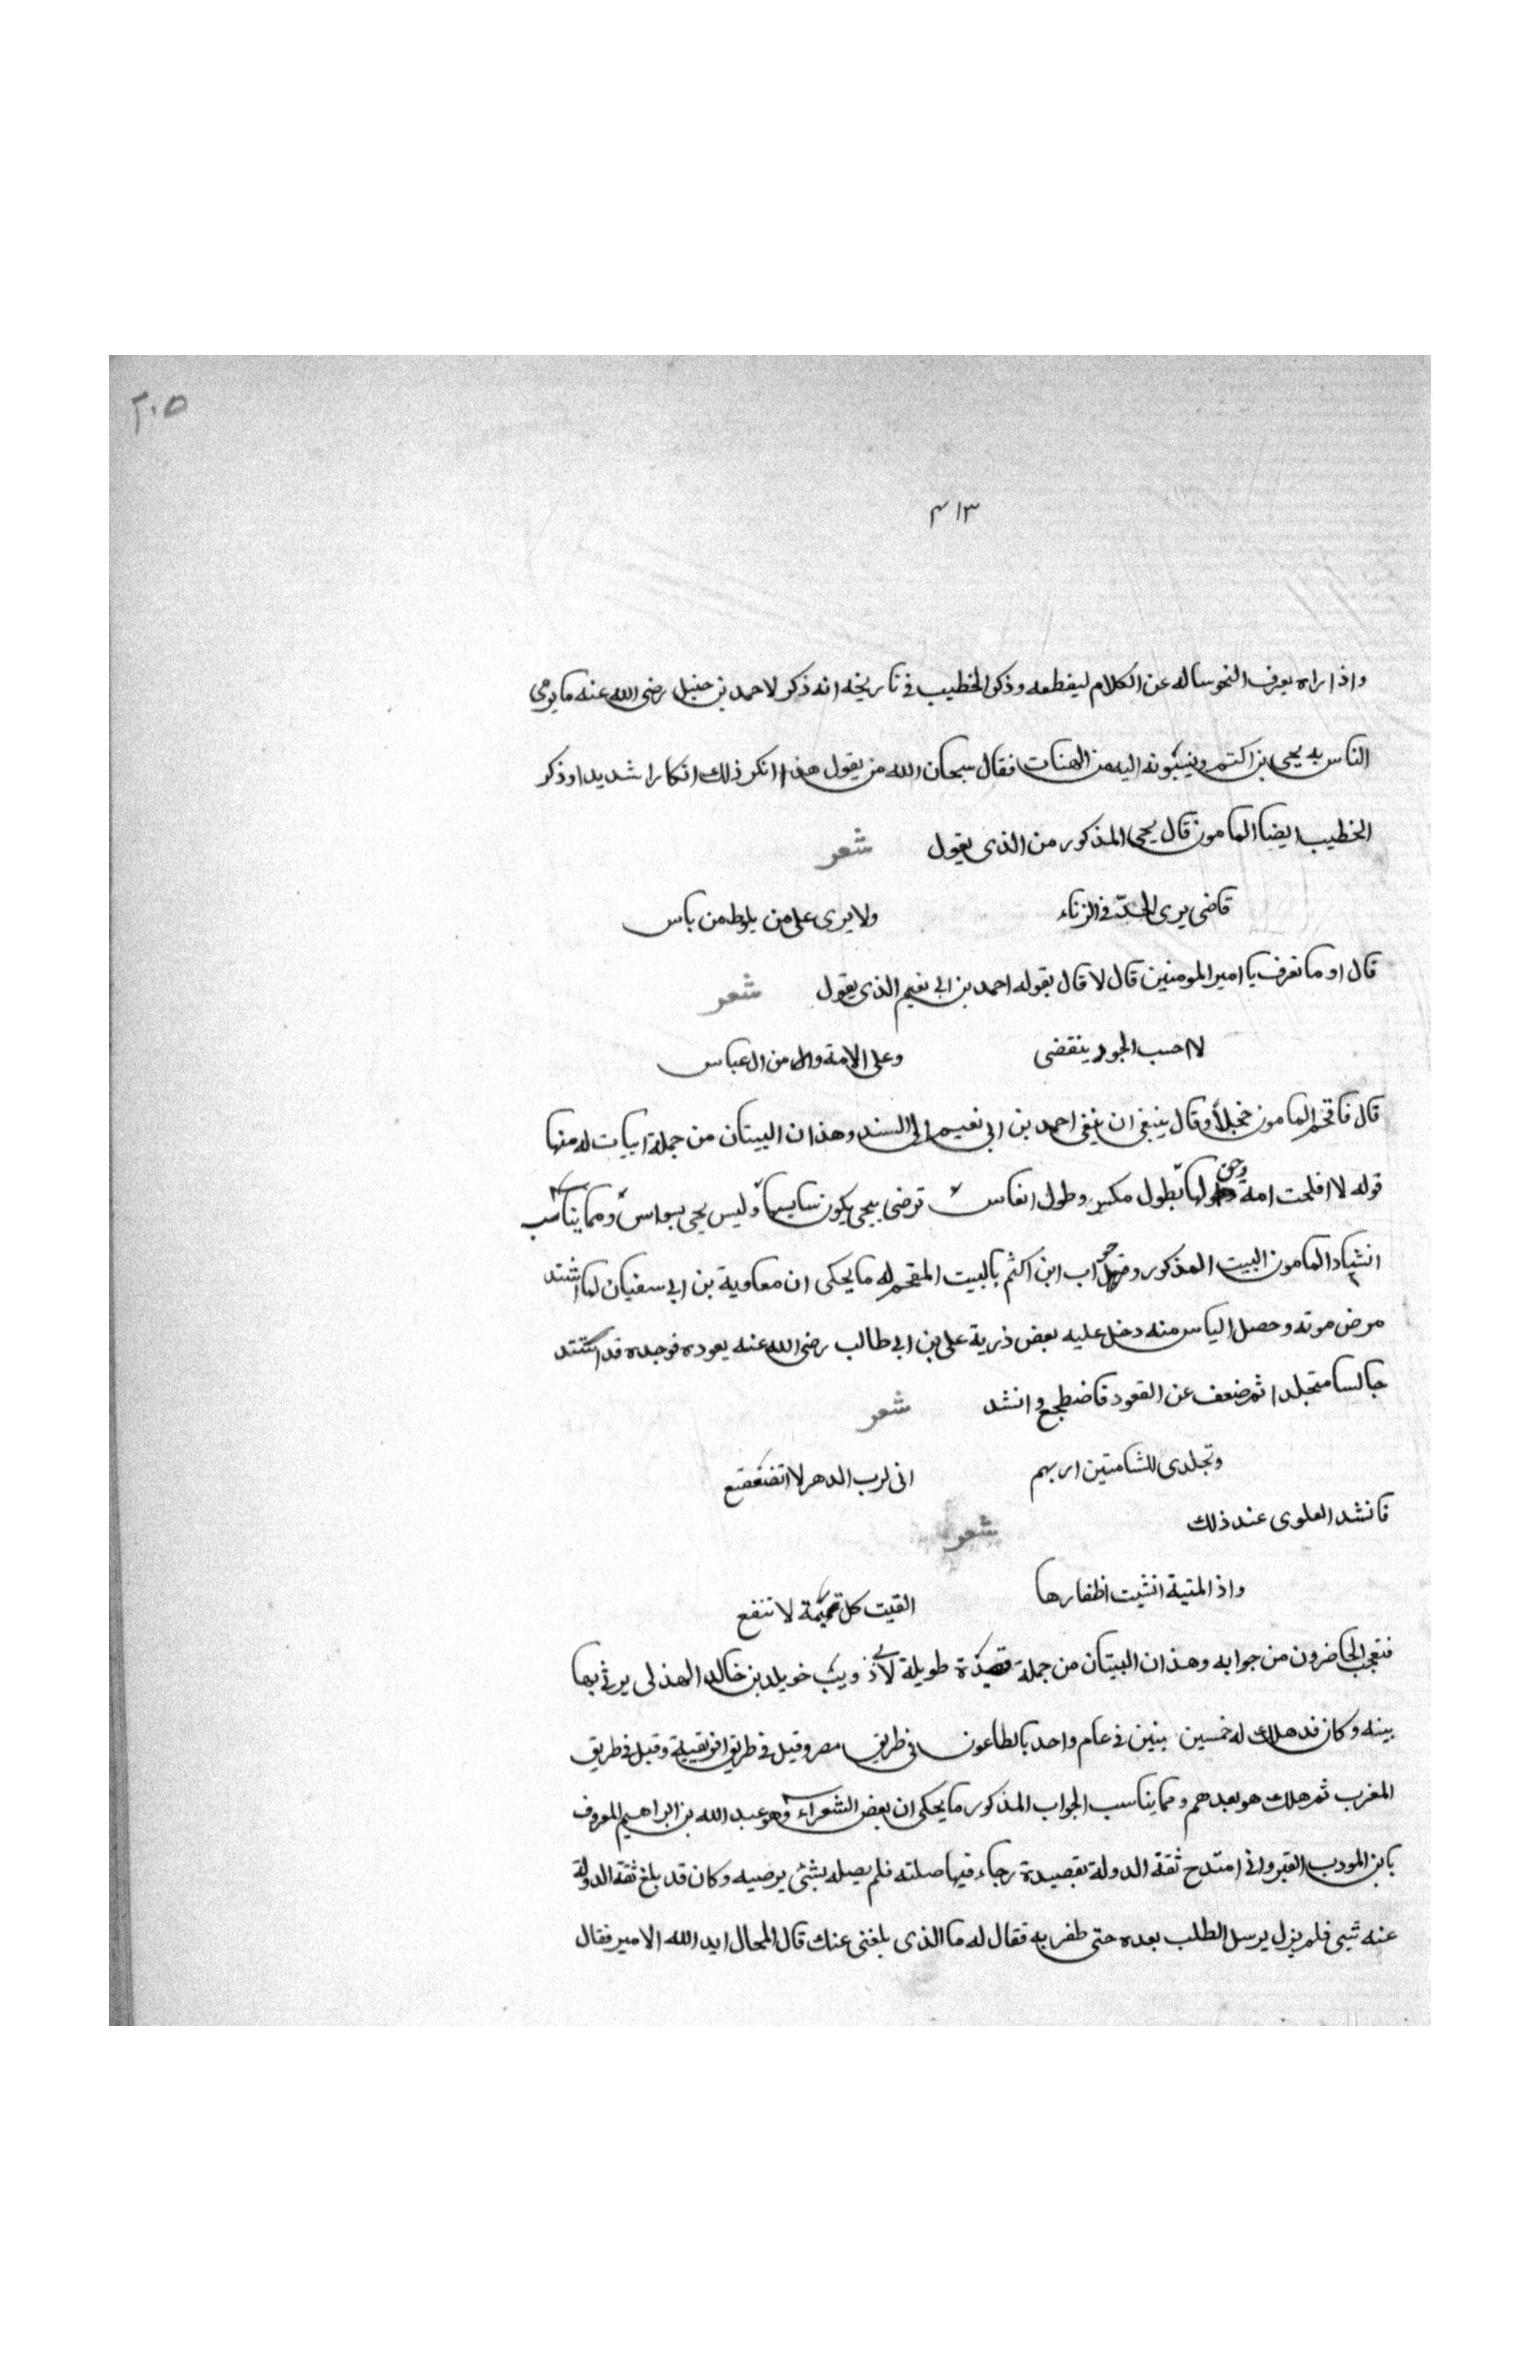 ٢٠٥
٤١٣
واذا راه يعرف النحو ساله عن الكلام ليقطعه وذكر الخطيب فى تاريخه انه ذكر لاحمد بن حنبل رضى الله عنه ما يرمى
الناس به يحيى بن اكتم وينسبونه اليه من الهنات فقال سبحان الله من يقول هذا انكر ذلك انكارا شديدا وذكر
الخطيب ايضا المامون قال يحيى المذكور من الذى يقول شعر
قاضى يرى الحدّ فى الزناء ولا يرى على من يلوط من باس
قال او ما تعرف يا امير المومنين قال لا قال يقوله احمد بن ابى نعيم الذى يقول شعر
لا احسب الجور ينقضى وعلى الامة وال من ال عباس
قال فافحم المامون خجلاً وقال ينبغى ان ينفى احمد بن ابى نعيم الى السند وهذان البيتان من جملة ابيات له منها
قوله لا افلحت امة وحق لها بطول مكس وطول انفاس ترضى بيحيى يكون سايسها وليس يحيى بسواس ومما يناسب
انشاد المامون البيت المذكور وجواب ابن اكثم بالبيت المقحم له ما يحكى ان معاوية بن ابى سفيان لما اشتد
مرض موته وحصل الياس منه دخل عليه بعض ذرية على بن ابى طالب رضى الله عنه يعوده فوجده قد استند
جالسا متجلدا ثم ضعف عن القعود فاضطجع وانشد شعر
وتجلدى للشامتين اريهم انى لرب الدهر لا اتضعضع
فانشد العلوى عند ذلك شعر
واذ المنية انثيت اظفارها القيت كل تميمة لا تنفع
فتعجب الحاضرون من جوابه وهذان البيتان من جملة قصيدة طويلة لابى ذويب خويلد بن خالد الهذلى يرثى بها
بينه وكان قد هلك له خمسين بنين فى عام واحد بالطاعون فى طريق مصر وقيل فى طريق افريقية وقيل فى طريق
المغرب ثم هلك هو بعدهم ومما يناسب الجواب المذكور ما يحكى ان بعض الشعراء وهو عبد الله بن ابراهيم المعروف
بابن المودب القيروانى امتدح ثقة الدولة بقصيدة رجاء فيها صلته فلم يصله بشئ يرضيه وكان قد بلغ ثقة الدولة
عنه شيى فلم يزل يرسل الطلب بعده حتى ظفر به فقال له ما الذى بلغنى عنك قال المحال ايد الله الامير فقال